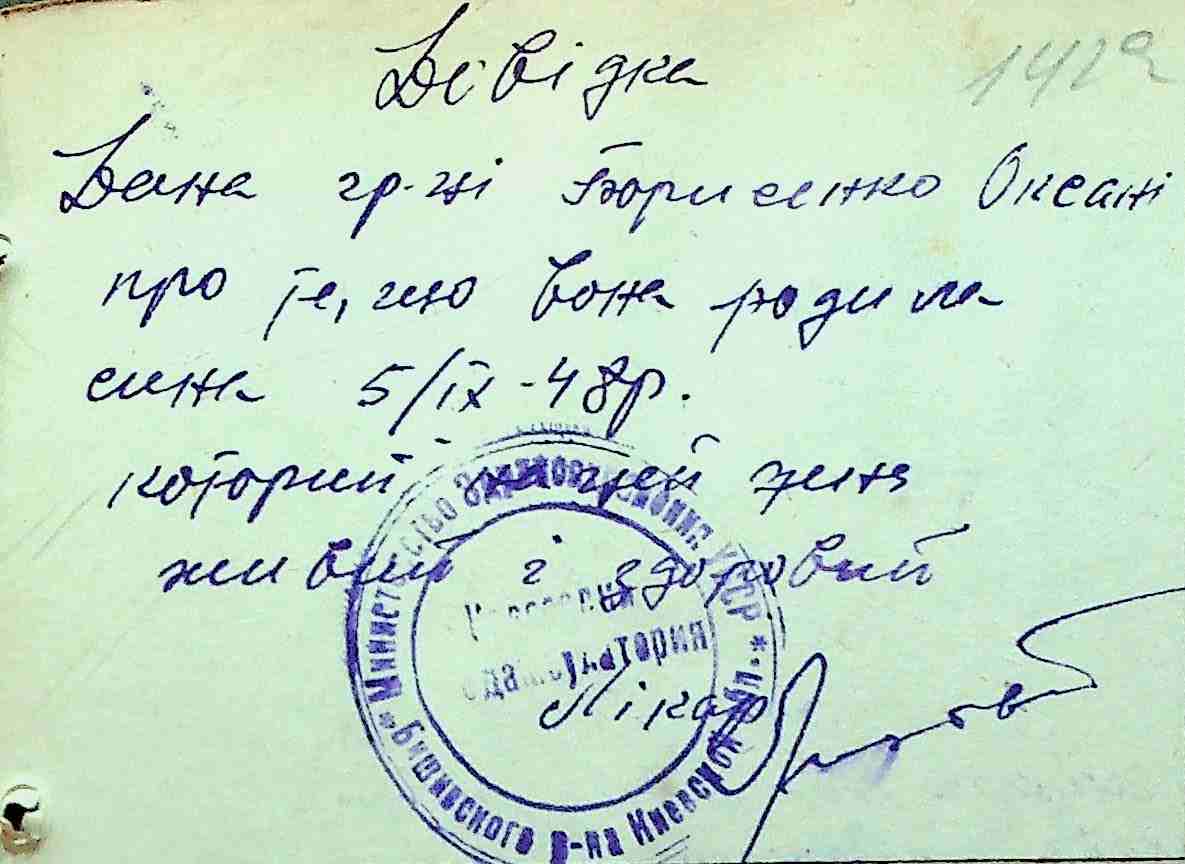 Довідка
1429
Дана гр-ці Борисенко Оксані
про те, що вона родила
сина 5/ІХ-48р.
которий на цей день
живий і здоровий
Лікар
* Министерство Здравоохранения УССР *
амбулатория
Бишевского р-на Киевской обл.